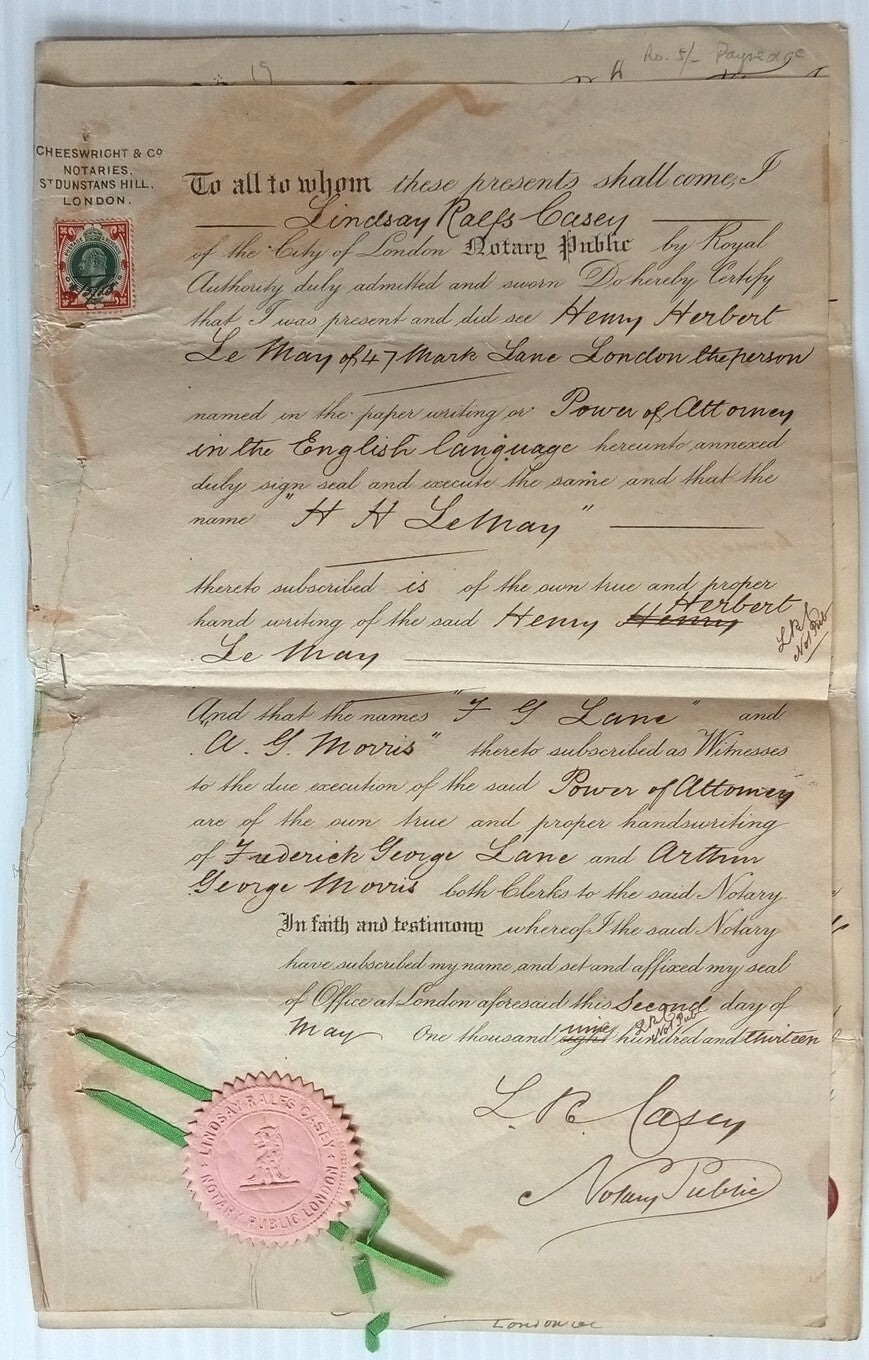 Ro. 5/-
19
CHEESWRIGHT & Co
NOTARIES.
ST DUNSTANS HILL.
LONDON.
To all to whom these presents shall come, I
Lindsay Ralfs Casey
of the City of London Notary Public by Royal
Authority duly admitted and sworn Do hereby Certify
that I was present and did see Henry Herbert
Le May of 47 Mark Lane London the person
named in the paper writing or Power of Attorney
in the English language hereunto annexed
duly sign seal and execute the same and that the
name "H H LeMay"
thereto subscribed is of the own true and proper
Herbert
hand writing of the said Henry Henry
L R C
Not Pub
Le May
And that the names "F G Lane" and
"A. G. Morris" thereto subscribed as Witnesses
to the due execution of the said Power of Attorney
are of the own true and proper handwriting
of Frederick George Lane and Arthur
George Morris both Clerks to the said Notary.
In faith and testimony whereof I the said Notary
have subscribed my name and set and affixed my seal
of Office at London aforesaid this Second day of
nine L R C Not Pub
May One thousand eight hundred and thirteen
L. R. Casey
Notary Public
LINDSAY RALFS CASEY
NOTARY PUBLIC LONDON
London